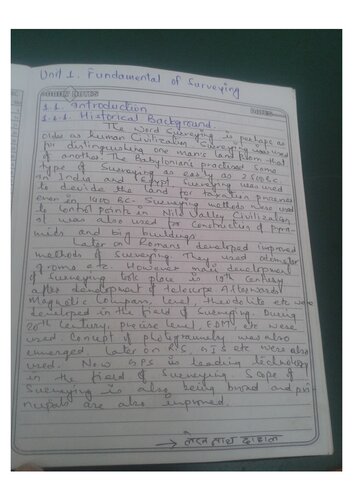 Unit 1. Fundamental of Surveying
1.1. Introduction
1.1.1. Historical Background.
The Word Surveying is perhaps as
olde as human Civilization. Surveying was used
for distinguishing one man's land from that
of another. The Babylonians practised some
type of Surveying as early as 2500 BC.
In and Egypt Surveying was used
to devide the land for taxation purposes
even in 1400 BC. Surveying methods were used
to control points in Nile Valley Civilization
It was also used for Construction of pyra-
mids and big buildings.
Later on Romans developed improved
methods of Surveying They used
groma etc. However main development
of Surveying took place in 19th Century
after development of telescope Afterwards
Magnetic Compass, level, theodolite etc were
developed in the field of Surveying. During
20th Century, precise level, EDM etc were
used. Concept of photogrammetry was also
emerged. Later on R.S, GIS etc were also
used. Now GPS is leading technology
in the field of Surveying. Scope of
Surveying is also being broad and
are also improved.